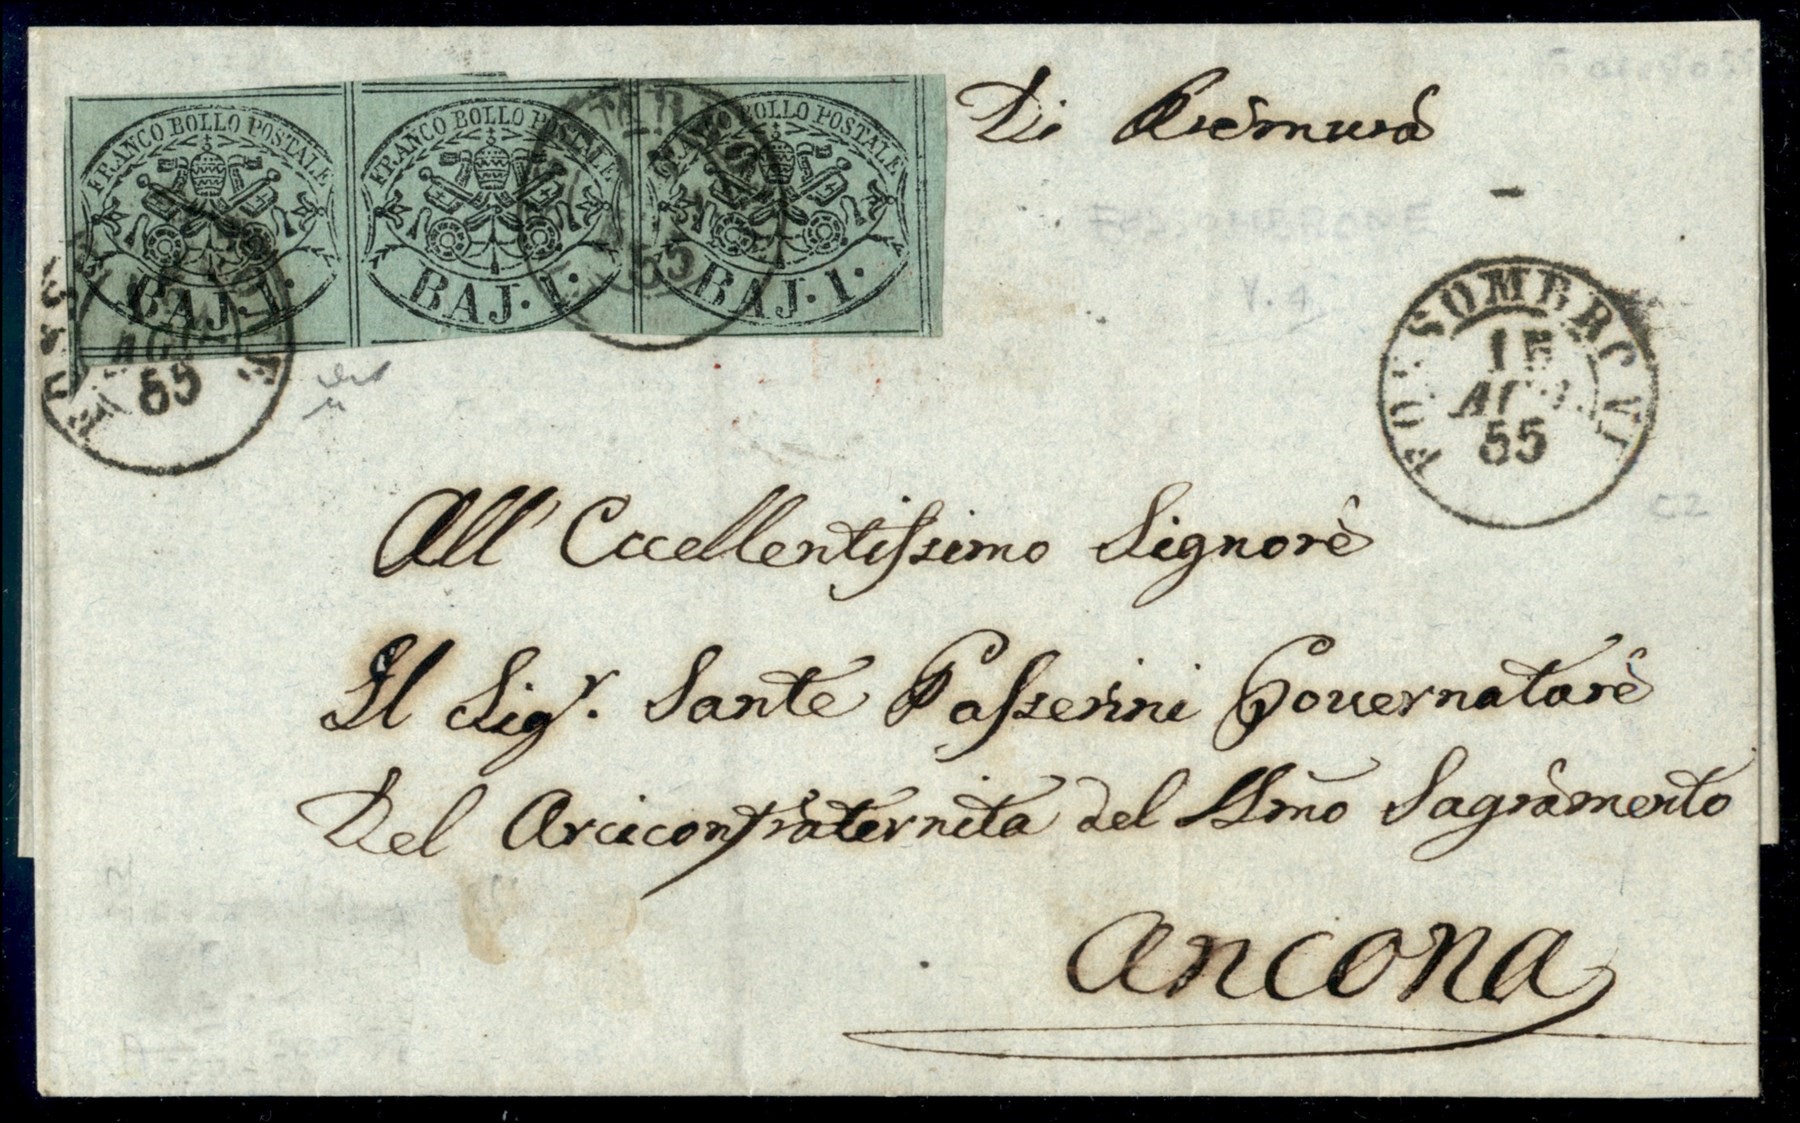 FRANCO BOLLO POSTALE
BAJ. 1.
FRANCO BOLLO POSTALE
BAJ. 1.
FRANCO BOLLO POSTALE
BAJ. 1.
Di Premura
FOSSOMBRONE
V. 4
FOSSOMBRO VE
15
AGO.
55
AGO
55
55
C2
All' Eccellentissimo Signore
Il Sigr. Sante Passerini Governatore
Del Arciconfraternita del SSmo Sagramento
Ancona